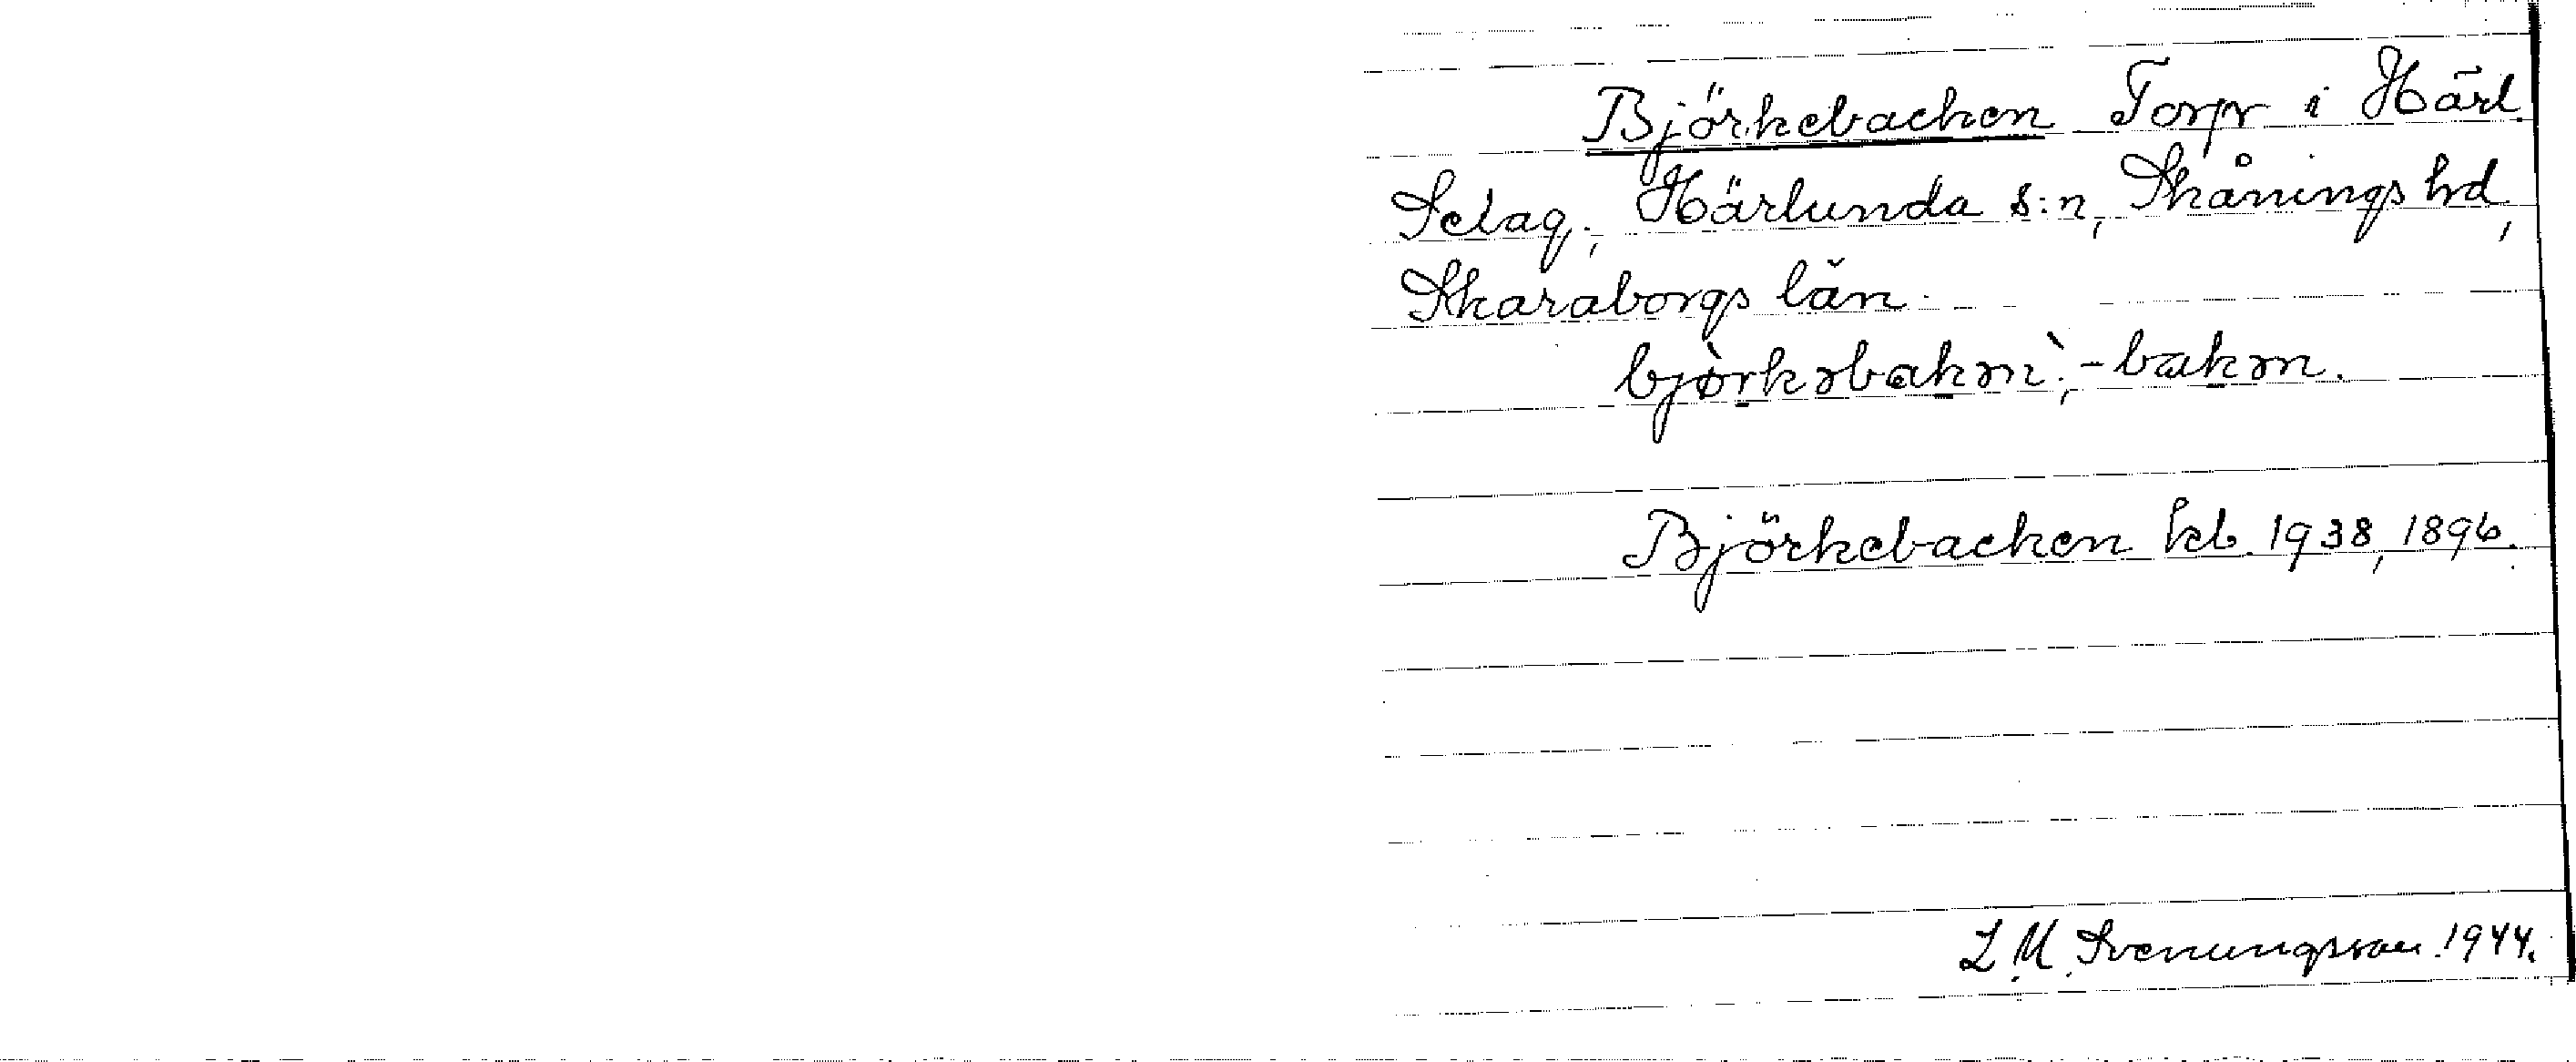 Björkebacken Torp i Härl.
Selag., Härlunda s:n, Skånings hd,
Skaraborgs län.
bjòrkəbakən`, -bakən.
Björkebacken kb. 1938, 1896.
L. M. Svenungsson 1944.